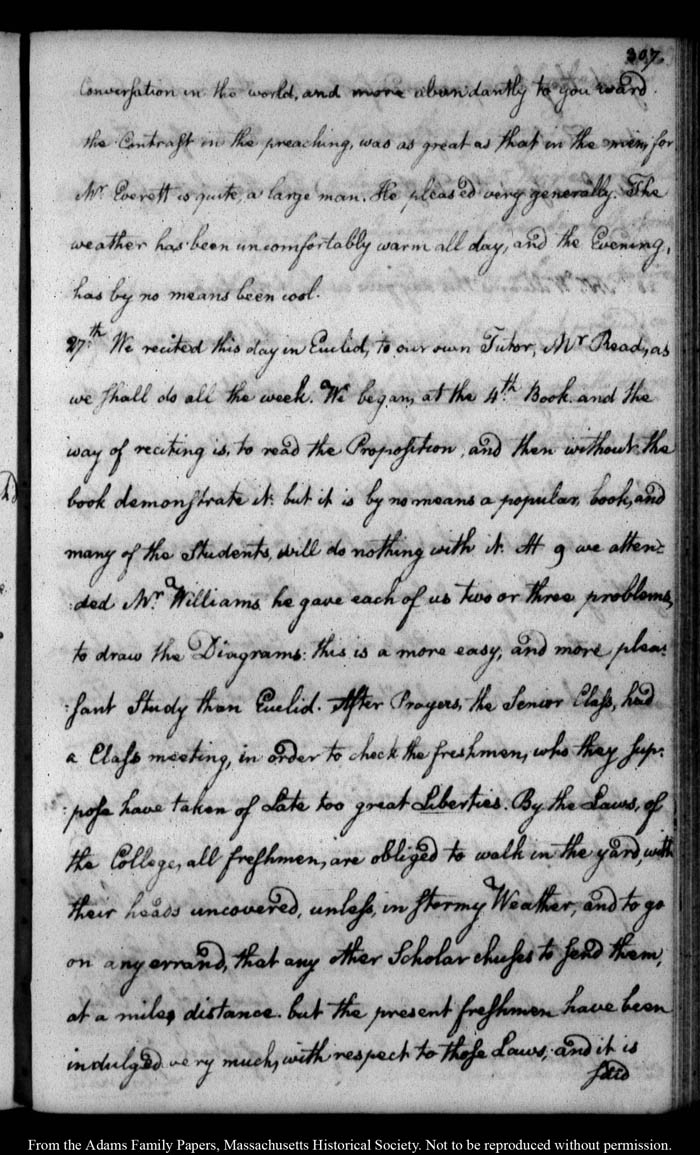 307.
Conversation in the world, and more abundantly to you ward.
the Contrast in the preaching, was as great as that in the mien, for
Mr. Everett is quite, a large man. He pleased very generally. The
weather has been uncomfortably warm all day, and the Evening,
has by no means been cool.
27th. We recited this day in Euclid, to our own Tutor, Mr Read, as
we shall do all the week. We began, at the 4th. Book. and the
way of reciting is, to read the Proposition, and then without the
book demonstrate it: but it is by no means a popular, book, and
many of the Students, will do nothing with it. At 9 we atten-
:ded Mr. Williams. he gave each of us two or three problems,
to draw the Diagrams: this is a more easy, and more plea:
:sant Study than Euclid. After Prayers, the Senior Class, had
a Class meeting, in order to check the freshmen, who they sup:
:pose have taken of Late too great Liberties. By the Laws, of
the College, all freshmen, are obliged to walk in the yard, with
their heads uncovered, unless, in stormy Weather, and to go
on any errand, that any other Scholar chuses to send them,
at a mile, distance. but the present freshmen have been
indulged very much, with respect to those Laws, and it is
said
From the Adams Family Papers, Massachusetts Historical Society. Not to be reproduced without permission.